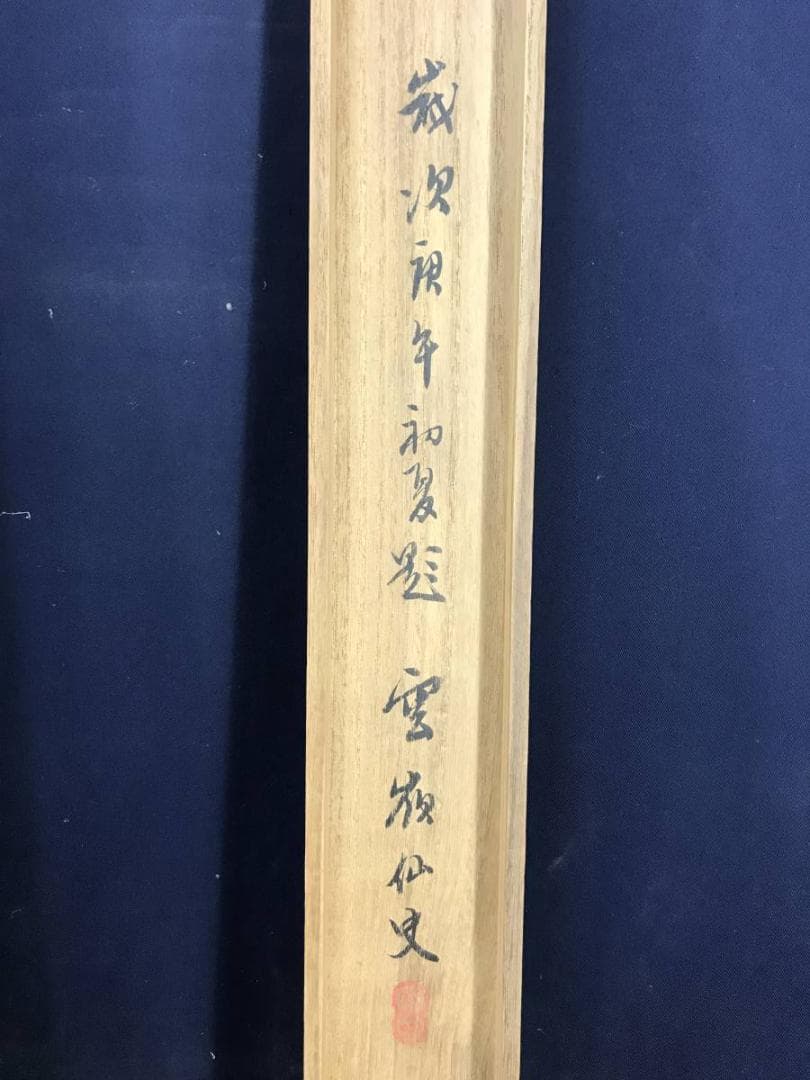 歳次庚午初夏題 雲嶺仙史